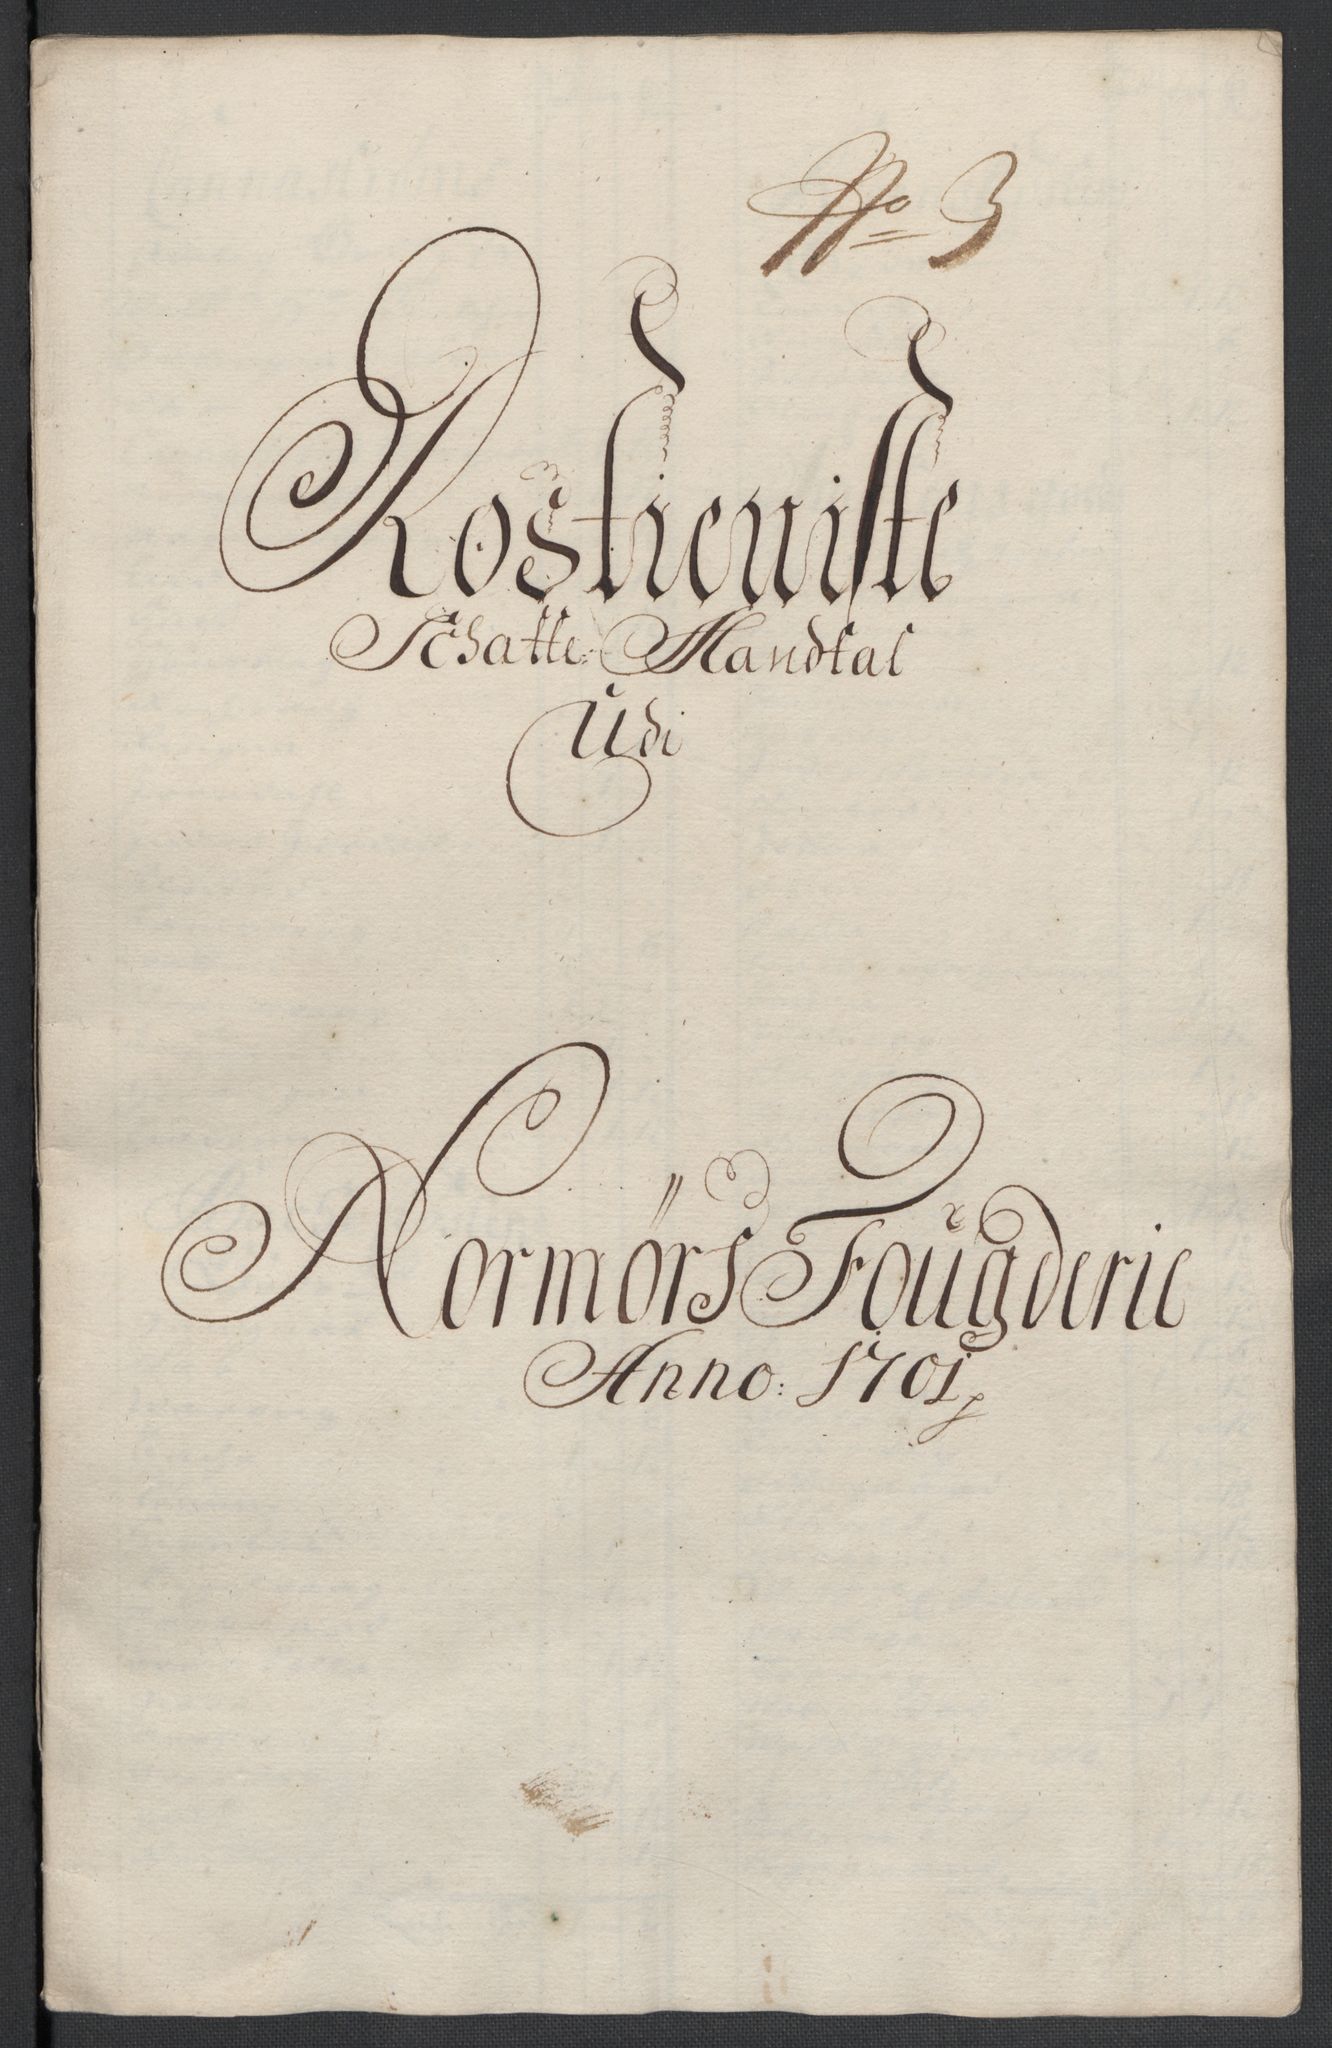 No 3
Rostieniste
Schatte: Mandtal
Udi
Normørs Fougderie
Anno: 1701